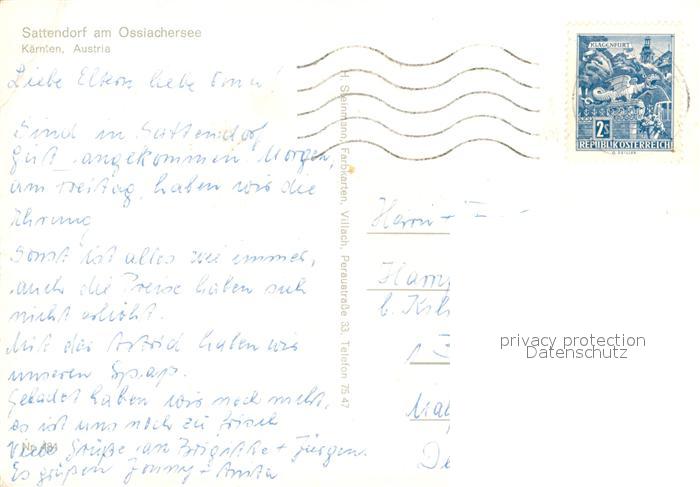 Sattendorf am Ossiachersee
Kärnten, Austria
Liebe Eltern liebe
Sind in Sattendorf
gut angekommen Morgen,
am Freitag, haben wir die
Ehrung
Sonst ist alles wie immer,
auch die Preise haben sich
nicht erhöht.
Mit der Astrid haben wir
unseren Spaß.
Gebadet haben wir noch nicht,
es ist uns noch zu frisch
Viele Grüße an Brigitte + Jürgen.
Es grüßen Jonny + Anita
Nr. 484
H. Steinmann, Farbkarten, Villach, Peraustraße 33, Telefon 75 47
KLAGENFURT
2s
REPUBLIK ÖSTERREICH
privacy protection
Datenschutz